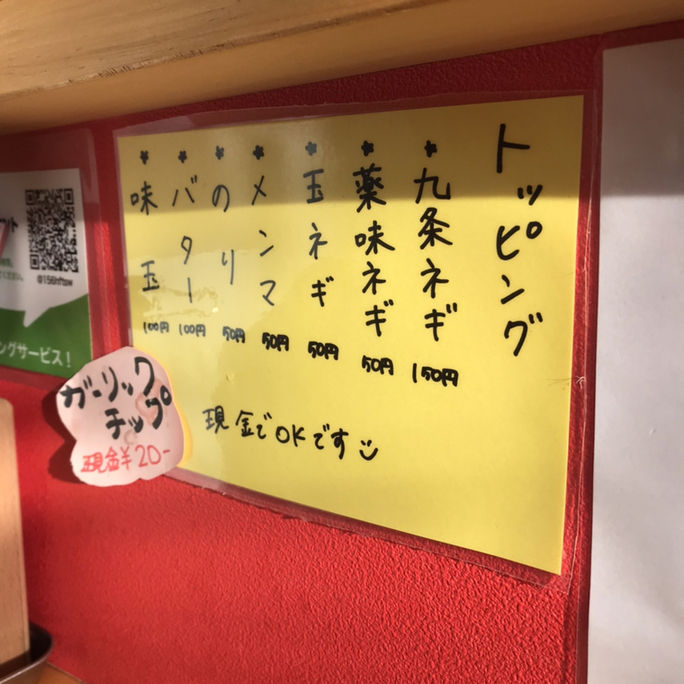 トッピング
*九条ネギ 150円
*薬味ネギ 50円
*玉ネギ 50円
*メンマ 50円
*のり 50円
*バター 100円
*味玉 100円
現金でOKです
ガーリック
チップ
現金¥20-
@156hftow
ングサービス!